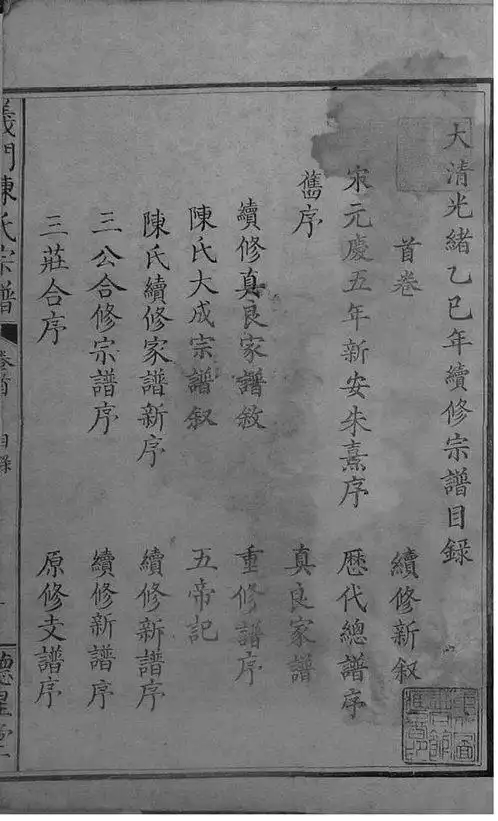 大清光緒乙巳年續修宗譜目錄
首卷
續修新叙
宋元慶五年新安朱熹序
歷代總譜序
舊序
真良家譜
續修真良家譜敘
重修譜序
陳氏大成宗譜叙
五帝記
陳氏續修家譜新序
續修新譜序
三公合修宗譜序
續修新譜序
三莊合序
原修支譜序
義門陳氏宗譜
卷首
目錄